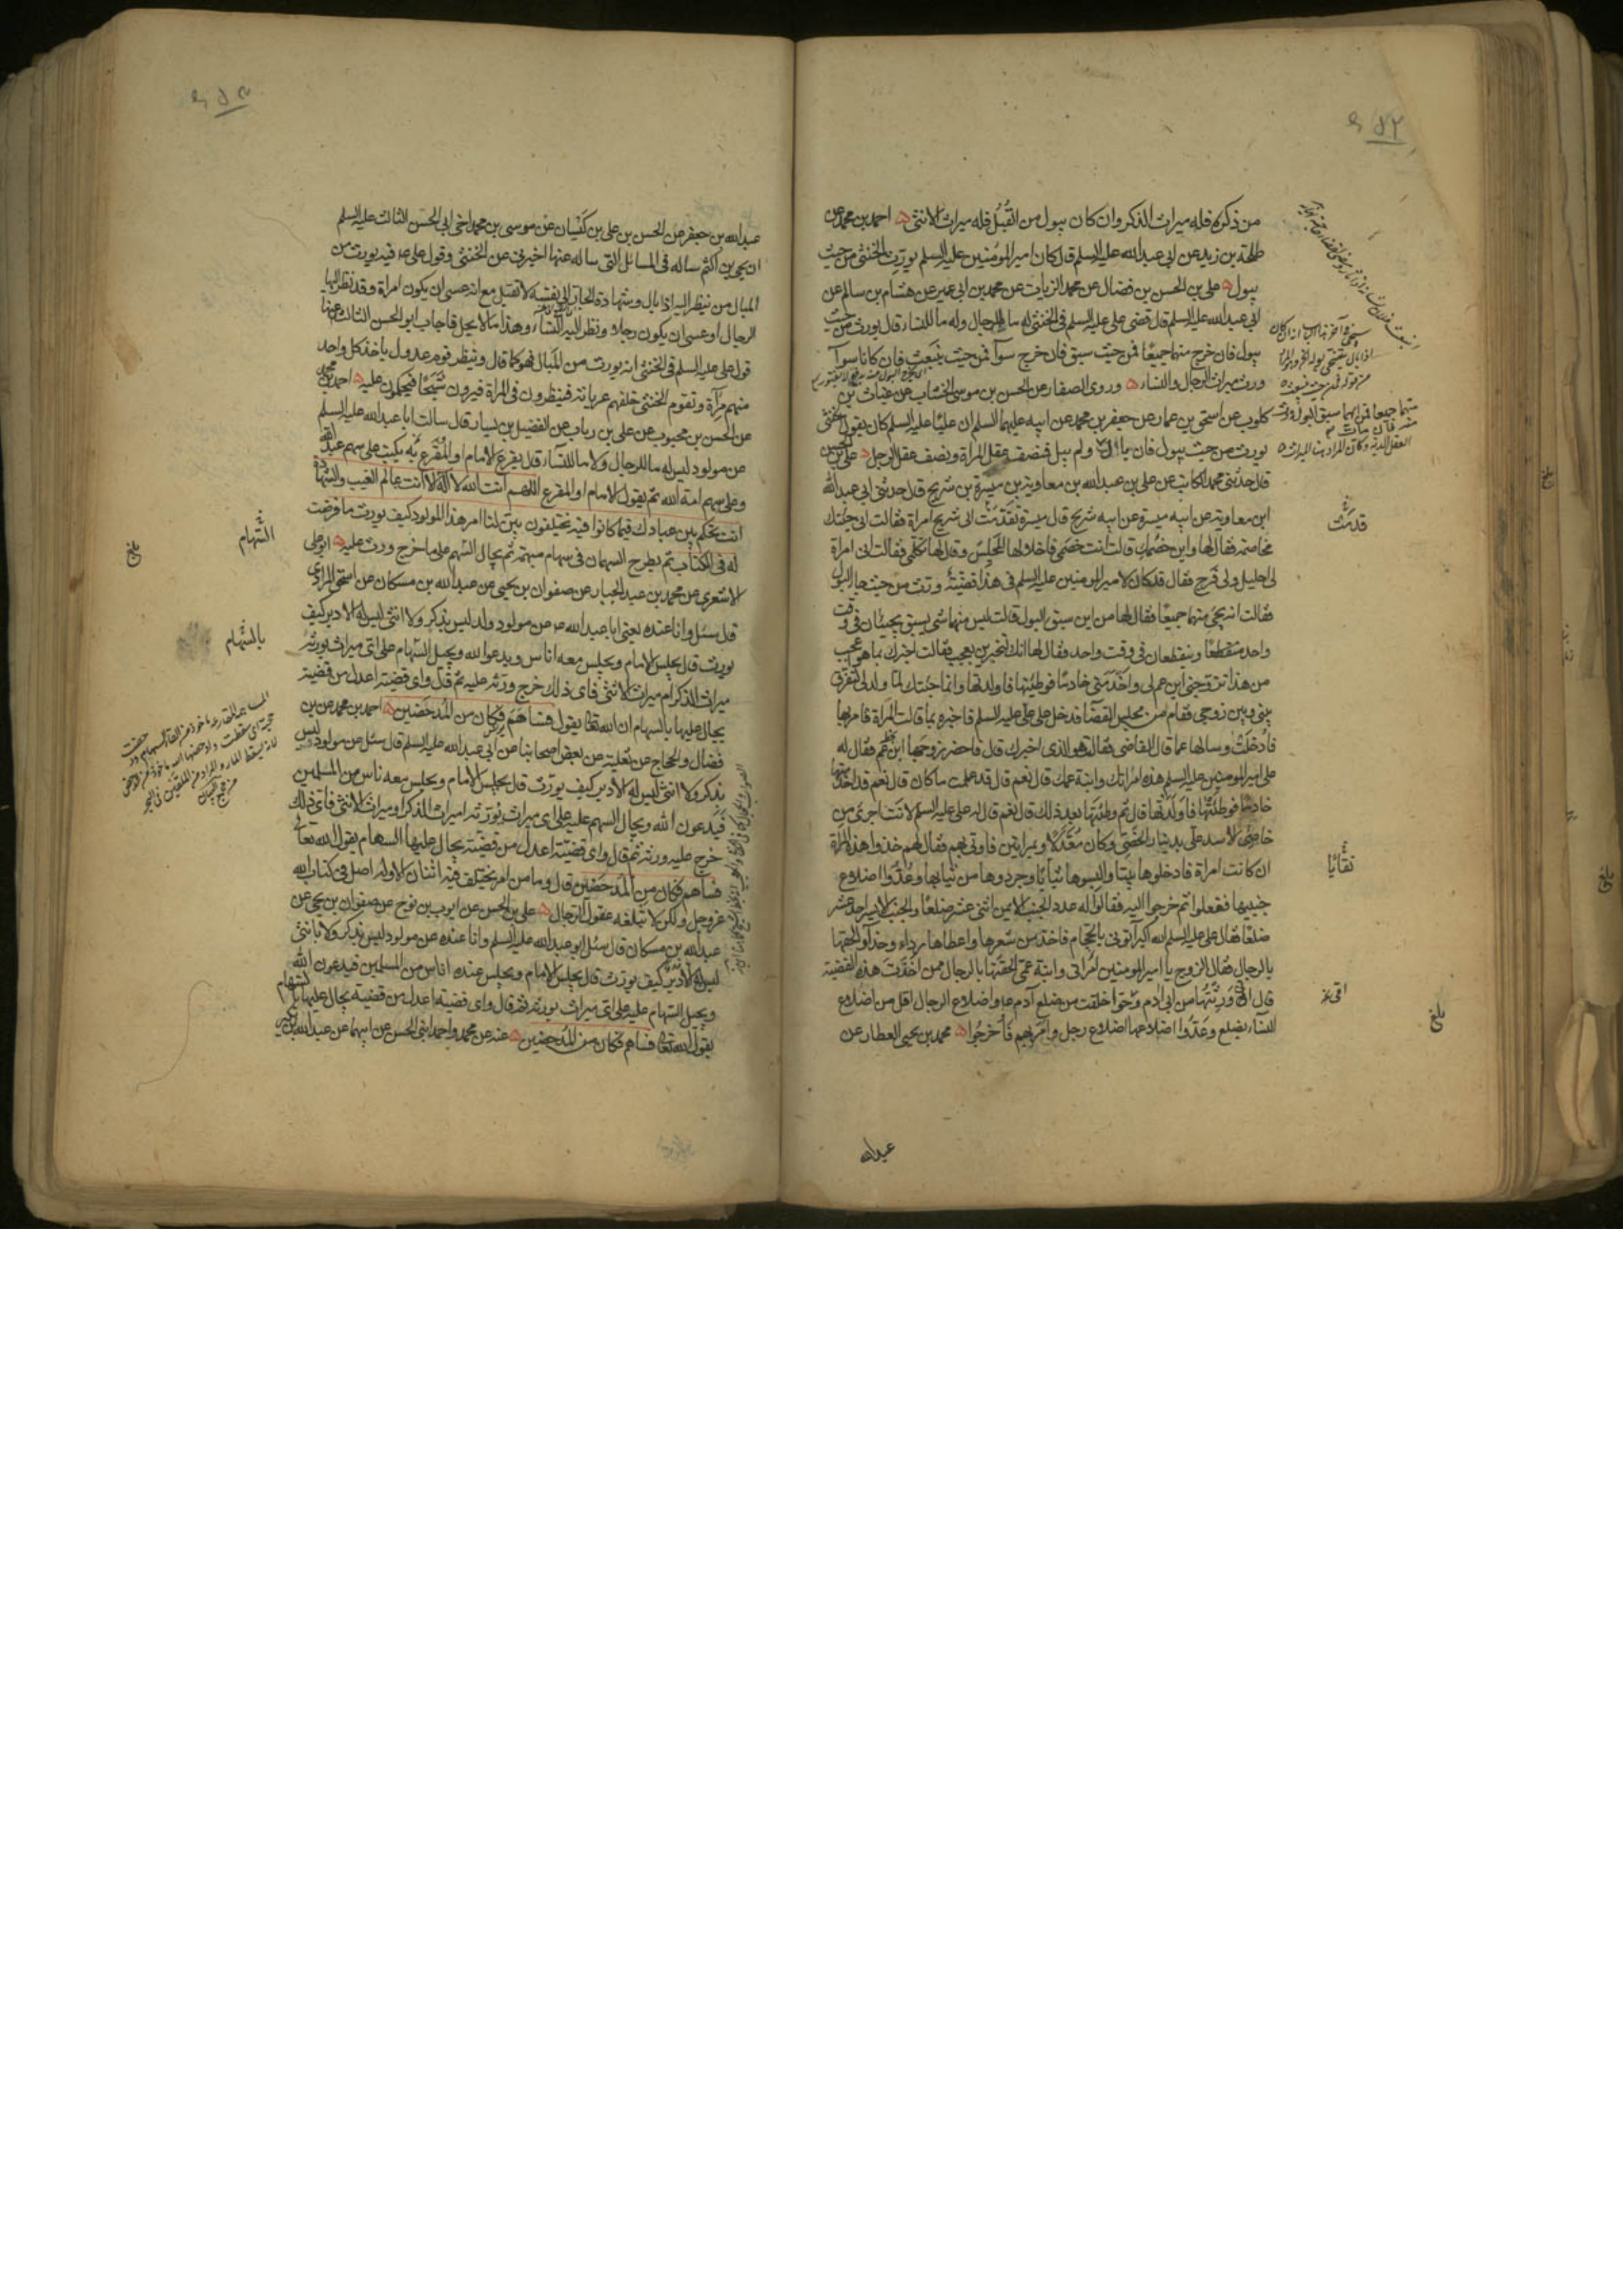 من ذكره فله ميراث الذكر وان كان يبول من القُبُل فله ميراث الانثى احمد بن محمد عن
طلحة بن زيد عن ابى عبد الله عليه السلم قال كان امير المؤمنين عليه السلم يورّث الخنثى من حيث
يبول على بن الحسن بن فضال عن محمد الزيات عن محمد بن ابى عمير عن هشام بن سالم عن
ابى عبد الله عليه السلم قال قضى على عليه السلم فى الخنثى له ما للرجال وله ما للنساء قال يورث من حيث
يبول فان خرج منهما جميعًا فمن حيث سبق فان خرج سوآء فمن حيث ينبعث فان كانا سوآء
ورث ميراث الرجال والنساء وروى الصفار عن الحسن بن موسى الخشاب عن غياث بن
كلوب عن اسحق بن عمار عن جعفر بن محمد عن ابيه عليهما السلم ان عليًا عليه السلم كان يقول الخنثى
يورث من حيث يبول فان بال ولم يبل فنصف عقل المراة ونصف عقل الرجل على بن الحسن
قال حدثنى محمد الكاتب عن على بن عبد الله بن معاوية بن ميسرة بن شريح قال حدثنى ابى عبد الله
ابن معاوية عن ابيه ميسرة عن ابيه شريح قال ميسرة تقدمت الى شريح امراة فقالت انى جئتك
مخاصمة فقال لها واين خصمك قالت انت خصمى فاخلا لها المجلس وقال لها تكلمى فقالت انى امراة
لى احليل ولى فرج فقال قد كان لامير المومنين عليه السلم فى هذا قضيّة ورّث من حيث جاء البول
فقالت انه يجئ منهما جميعًا فقال لها من اين سبق البول قالت ليس منهما شئ يسبق يجيئان فى وقت
واحد وينقطعان فى وقت واحد فقال لها انك لتخبرين بعجب فقالت اخبرك بما هو اعجب
من هذا تزوجنى ابن عم لى واخدمنى خادمًا فوطئتها فاولدتها وانما جئتك لمّا ولد لى لتفرق
بينى وبين زوجى فقام من مجلس القضآء فدخل على على عليه السلم فاخبره بما قالت المراة فامر بها
فادخلت وسالها عما قال القاضى فقالت هو الذى اخبرك قال فاحضر زوجها ابن عمها فقال له
على امير المومنين عليه السلم هذه امراتك وابنة عمك قال نعم قال قد علمت ما كان قال نعم قد اخدمتها
خادمًا فوطئتها فاولدتها قال ثم وطئتها بعد ذلك قال نعم قال له على عليه السلم لانت اجرئ من
خاصى الاسد علىّ بدينار الخصى وكان معدّلا وبمراتين فاوتى بهم فقال لهم خذوا هذه المراة
ان كانت امراة فادخلوها بيتا والبسوها ثيابا وجردوها من ثيابها وعُدّوا اضلاع
جنبيها ففعلوا ثم خرجوا اليه فقالوا له عدد الجنب الايمن اثنى عشر ضلعًا والجنب الايسر احد عشر
ضلعًا فقال على عليه السلم الله اكبر ائتونى بالحجام فاخذ من شعرها واعطاها رداء وحذآء والحقها
بالرجال فقال الزوج يا امير المومنين امراتى وابنة عمى الحقتها بالرجال ممن اخذت هذه القضية
قال انى ورثتها من ابى ادم وحوا خلقت من ضلع آدم واضلاع الرجال اقل من اضلاع
النساء بضلع وعدوا اضلاعها اضلاع رجل وامر بهم فاخرجوا محمد بن يحيى العطار عن
قدمت
نقائًا
بلغ
عبد الله
عبد الله بن جعفر عن الحسن بن على بن كَيْسان عن موسى بن محمد اخى ابى الحسن الثالث عليه السلم
ان يحيى بن اكثم ساله فى المسائل التى ساله عنها اخبرنى عن الخنثى وقول على فيه يورث من
المبال من ينظر اليه اذا بال وشهادة الجار الى نفسه لا تقبل مع انه عسى ان يكون امراة وقد نظر اليها
الرجال او عسى ان يكون رجلا ونظر اليه النساء وهذا ما لا يحل فاجاب ابو الحسن الثالث عنها
قول على عليه السلم فى الخنثى انه يورث من المبال فهو كما قال وينظر قوم عدول ياخذ كل واحد
منهم مرآة وتقوم الخنثى خلفهم عريانة فينظرون فى المراة فيرون شبحًا فيحكمون عليه احمد بن محمد
عن الحسن بن محبوب عن على بن رياب عن الفضيل بن يسار قال سالت ابا عبد الله عليه السلم
عن مولود ليس له ما للرجال ولا ما للنساء قال يقرع الامام او المُقرع به يكتب على سهم عبد الله
وعلى سهم امة الله ثم يقول الامام او المقرع اللهم انت الله لا اله الا انت عالم الغيب والشهادة
انت تحكم بين عبادك فيما كانوا فيه يختلفون بيّن لنا امر هذا المولود كيف يورث ما فرضت
له فى الكتاب ثم يطرح السهمان فى سهام مبهمة ثم يجال السّهم على ما خرج ورث عليه ابو على
الاشعرى عن محمد بن عبد الجبار عن صفوان بن يحيى عن عبد الله بن مسكان عن اسحق المرادى
قال سئل وانا عنده يعنى ابا عبد الله عن مولود ولد ليس بذكر ولا انثى ليس له الا دبر كيف
يورث قال يجلس الامام ويجلس معه اناس ويدعوا الله ويجيل السّهام على اى ميراث يورثه
ميراث الذكر ام ميراث الانثى فاى ذلك خرج ورّثه عليه ثم قال واى قضية اعدل من قضية
يجال عليها بالسهام ان الله تعالى يقول فساهم فكان من المُدحضين احمد بن محمد عن بن
فضال والحجاج عن ثعلبة عن بعض اصحابنا عن ابى عبد الله عليه السلم قال سئل عن مولود ليس
بذكر ولا انثى ليس له الا دبر كيف يورّث قال يجلس الامام ويجلس معه ناس من المسلمين
فيدعون الله ويجال السهم عليه على اى ميراث يورّثه اميراث الذكر او ميراث الانثى فاى ذلك
خرج عليه ورثه ثم قال واى قضيّة اعدل من قضيّة يجال عليها السهام يقول الله تعالى
فساهم فكان من المُدحضين قال وما من امر يختلف فيه اثنان الا وله اصل فى كتاب الله
عز وجل ولكن لا تبلغه عقول الرّجال على بن الحسن عن ايوب بن نوح عن صفوان بن يحيى عن
عبد الله بن مسكان قال سئل ابو عبد الله عليه السلم وانا عنده عن مولود ليس بذكر ولا بانثى
ليس له الا دبر كيف يورّث قال يجلس الامام ويجلس عنده اناس من المسلمين فيدعون الله
ويجيل السّهام عليه على اى ميراث يورثه ثم قال واى قضية اعدل من قضية يجال عليها بالسّهام
يقول الله تعالى فساهم فكان من المُدحضين عنه عن محمد واحمد ابنى الحسن عن ابيهما عن عبد الله بن بكير
السّهام
بلغ
بالسّهام